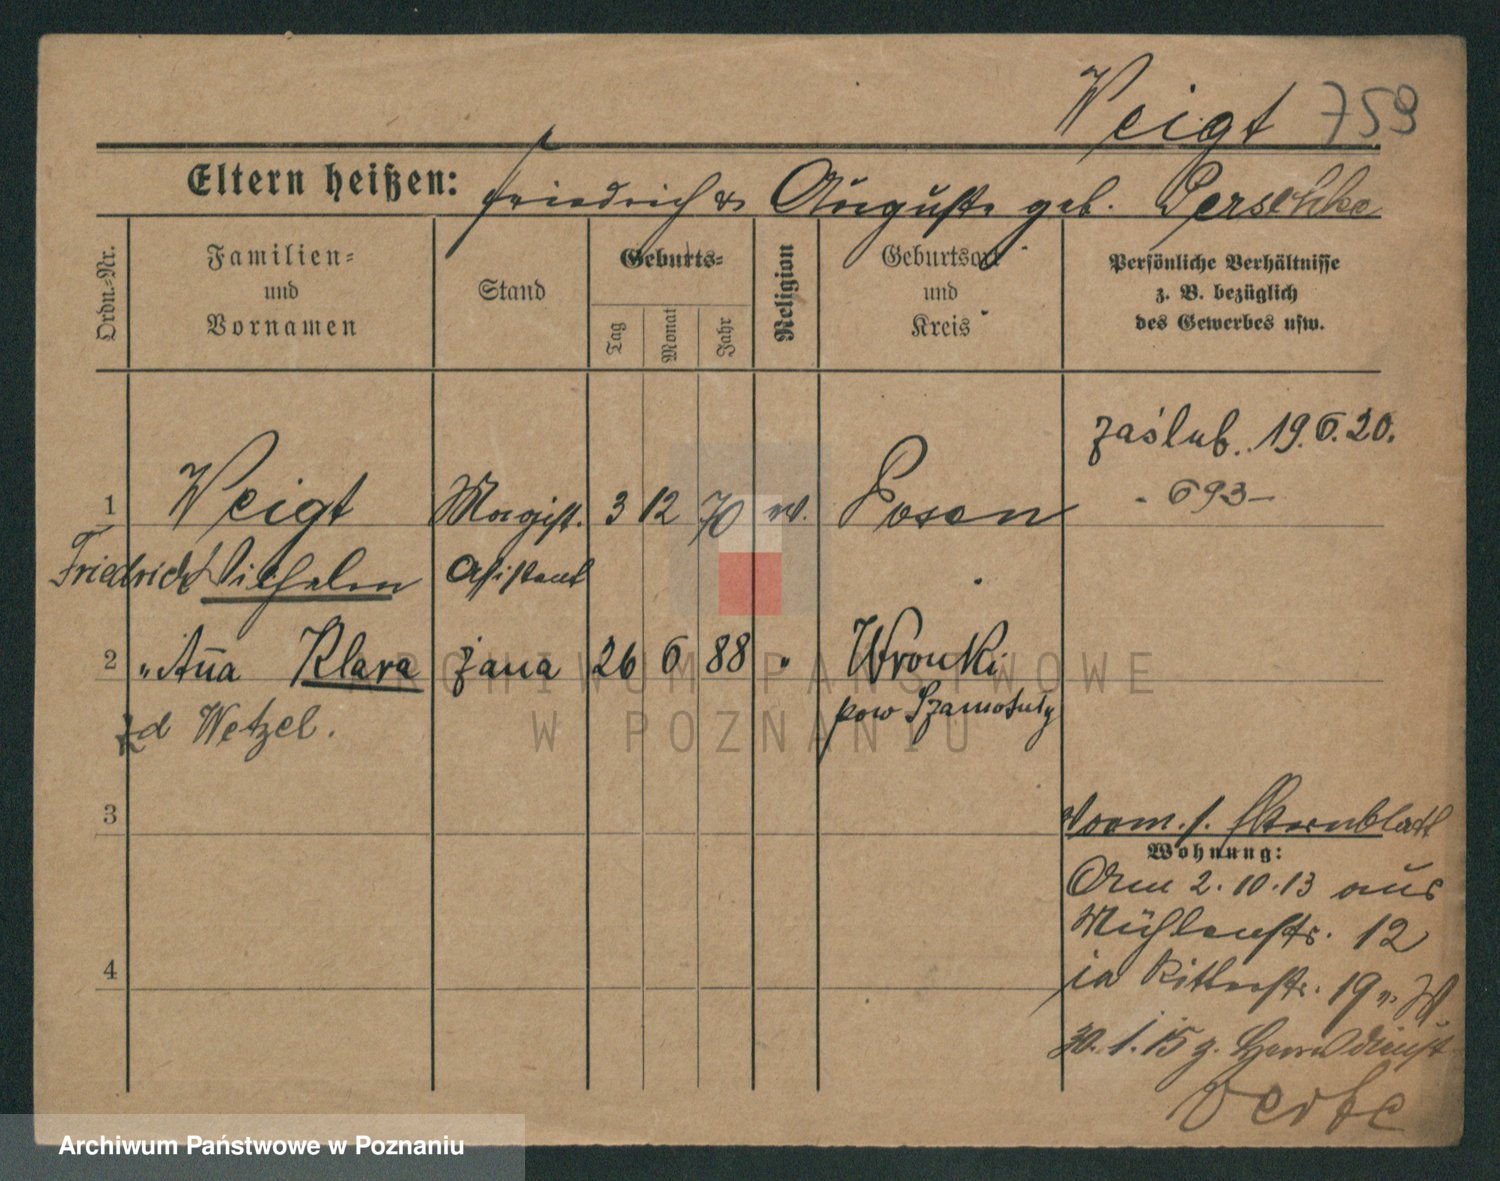 Veigt 759
Eltern heißen: Friedrich & Auguste geb. Perschke
Ordn.-Nr.
Familien-
und
Vornamen
Stand
Geburts-
Tag
Monat
Jahr
Religion
Geburtsort
und
Kreis
Persönliche Verhältnisse
z. B. bezüglich
des Gewerbes usw.
zaślub. 19.6.20.
- 693 -
1 Veigt Magist. 3 12 70 ev. Posen
Friedrich Wilhelm Assistent
2 " Anna Klara żona 26 6 88 " Wronki
zd Wetzel. pow Szamotuły
3
Vorm. s. Sternblatt
Wohnung:
Am 2.10.13 aus
Mühlenstr. 12
in Ritterstr. 19
4
30.1.15 z. Heeresdienst
ARCHIWUM PAŃSTWOWE
W POZNANIU
Archiwum Państwowe w Poznaniu